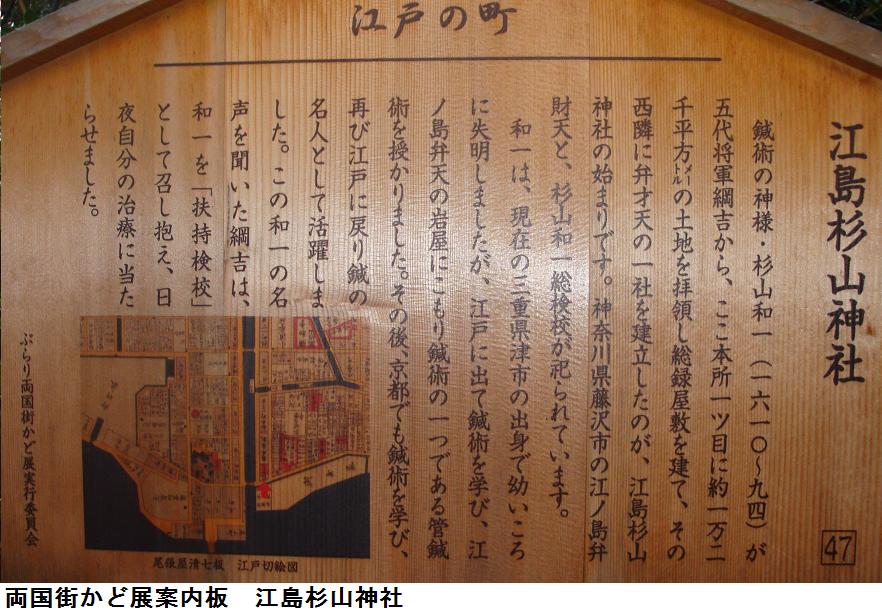 江戸の町
江島杉山神社
鍼術の神様・杉山和一（一六一〇〜九四）が
五代将軍綱吉から、ここ本所一ツ目に約一万二
千平方メートルの土地を拝領し総録屋敷を建て、その
西隣に弁才天の一社を建立したのが、江島杉山
神社の始まりです。神奈川県藤沢市の江ノ島弁
財天と、杉山和一総検校が祀られています。
和一は、現在の三重県津市の出身で幼いころ
に失明しましたが、江戸に出て鍼術を学び、江
ノ島弁天の岩屋にこもり鍼術の一つである管鍼
術を授かりました。その後、京都でも鍼術を学び、
再び江戸に戻り鍼の
名人として活躍しま
した。この和一の名
声を聞いた綱吉は、
和一を「扶持検校」
として召し抱え、日
夜自分の治療に当た
らせました。
尾張屋清七板　江戸切絵図
ぶらり両国街かど展実行委員会
47
両国街かど展案内板　江島杉山神社